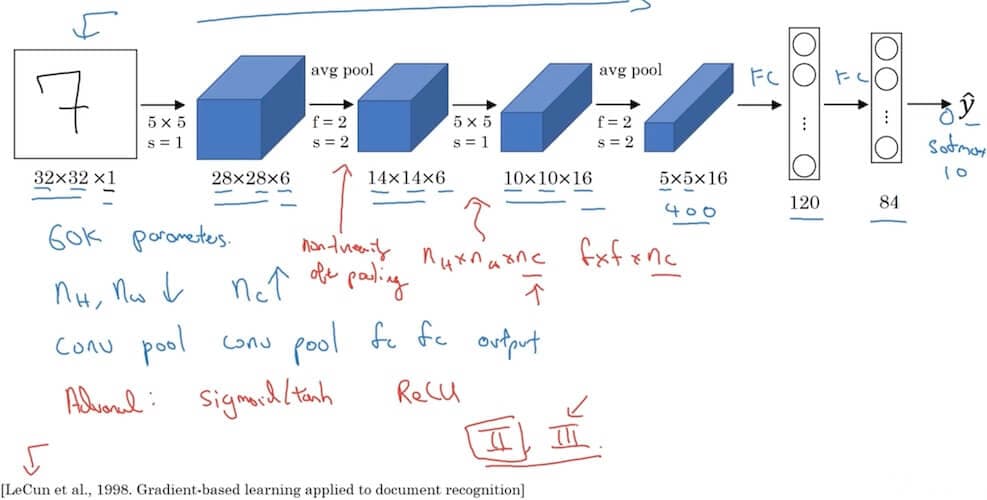 7
avg pool
avg pool
FC
FC
5 × 5
s = 1
f = 2
s = 2
5 × 5
s = 1
f = 2
s = 2
⋮
⋮
ŷ
softmax
10
32×32×1
28×28×6
14×14×6
10×10×16
5×5×16
400
120
84
60K parameters.
non-linearity
after pooling
nH × nW × nC f×f×nC
nH, nW ↓ nC ↑
conv pool conv pool fc fc output
Advanced: sigmoid/tanh ReLU
II III.
[LeCun et al., 1998. Gradient-based learning applied to document recognition]